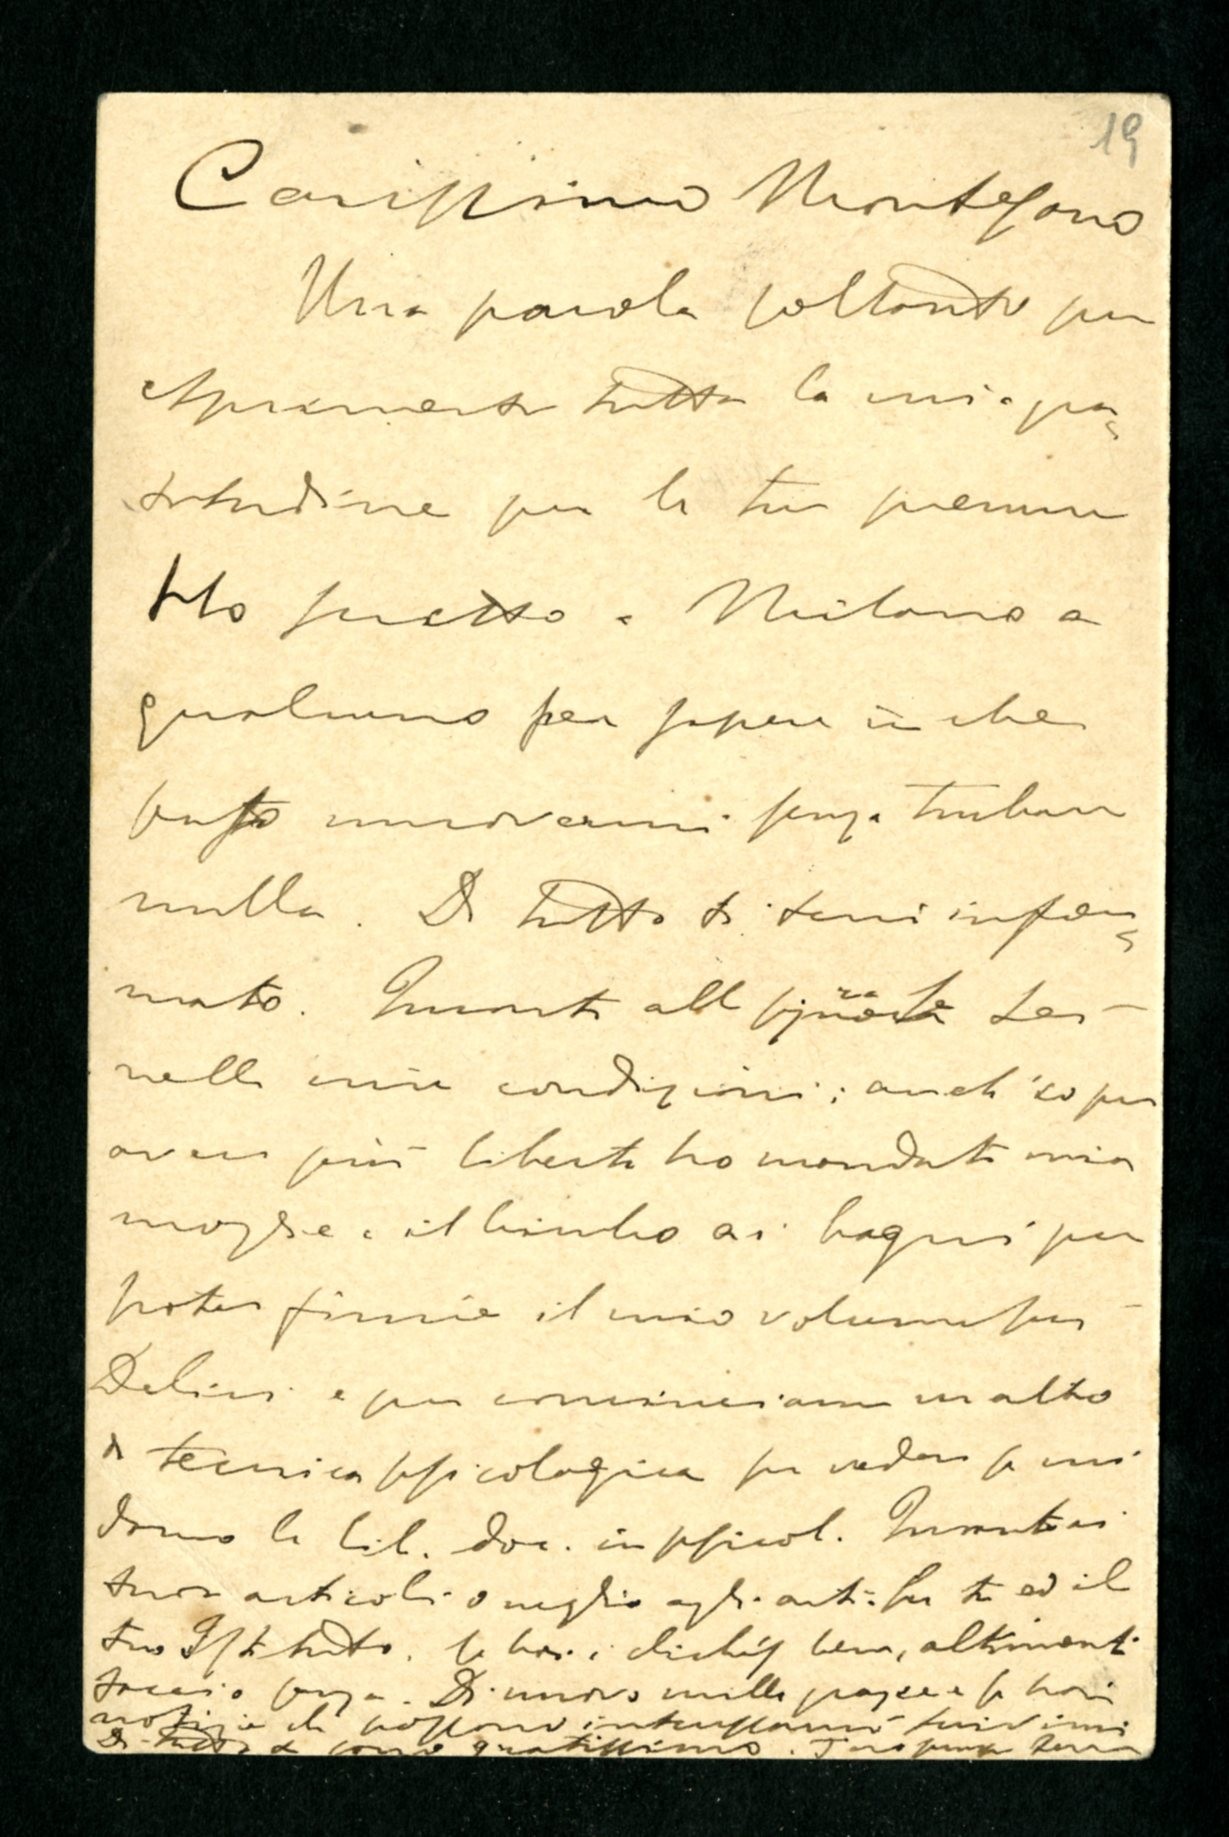 19
Carissimo Montesano
Una parola soltanto per
esprimerti tutta la mia gra=
titudine per le tue premure
Ho scritto a Milano a
qualcuno per sapere in che
posso muovermi senza turbare
nulla. Di tutto ti terrò infor=
mato. Quanto alla sig.ra
nelle mie condizioni; anch'io per
aver più libertà ho mandato mia
moglie e il bimbo ai bagni per
poter finire il mio volume sui
Deliri e per cominciarne un altro
di tecnica psicologica per vedere se mi
danno la lib. doc. in psicol. Quanto ai
tuoi articoli o meglio agli art. su te ed il
tuo Istituto. Se hai i clichés bene, altrimenti
faccio senza. Di nuovo mille grazie e se hai
notizie che possono interessarmi scrivimi
Di tutto ti sono gratissimo. Tuo